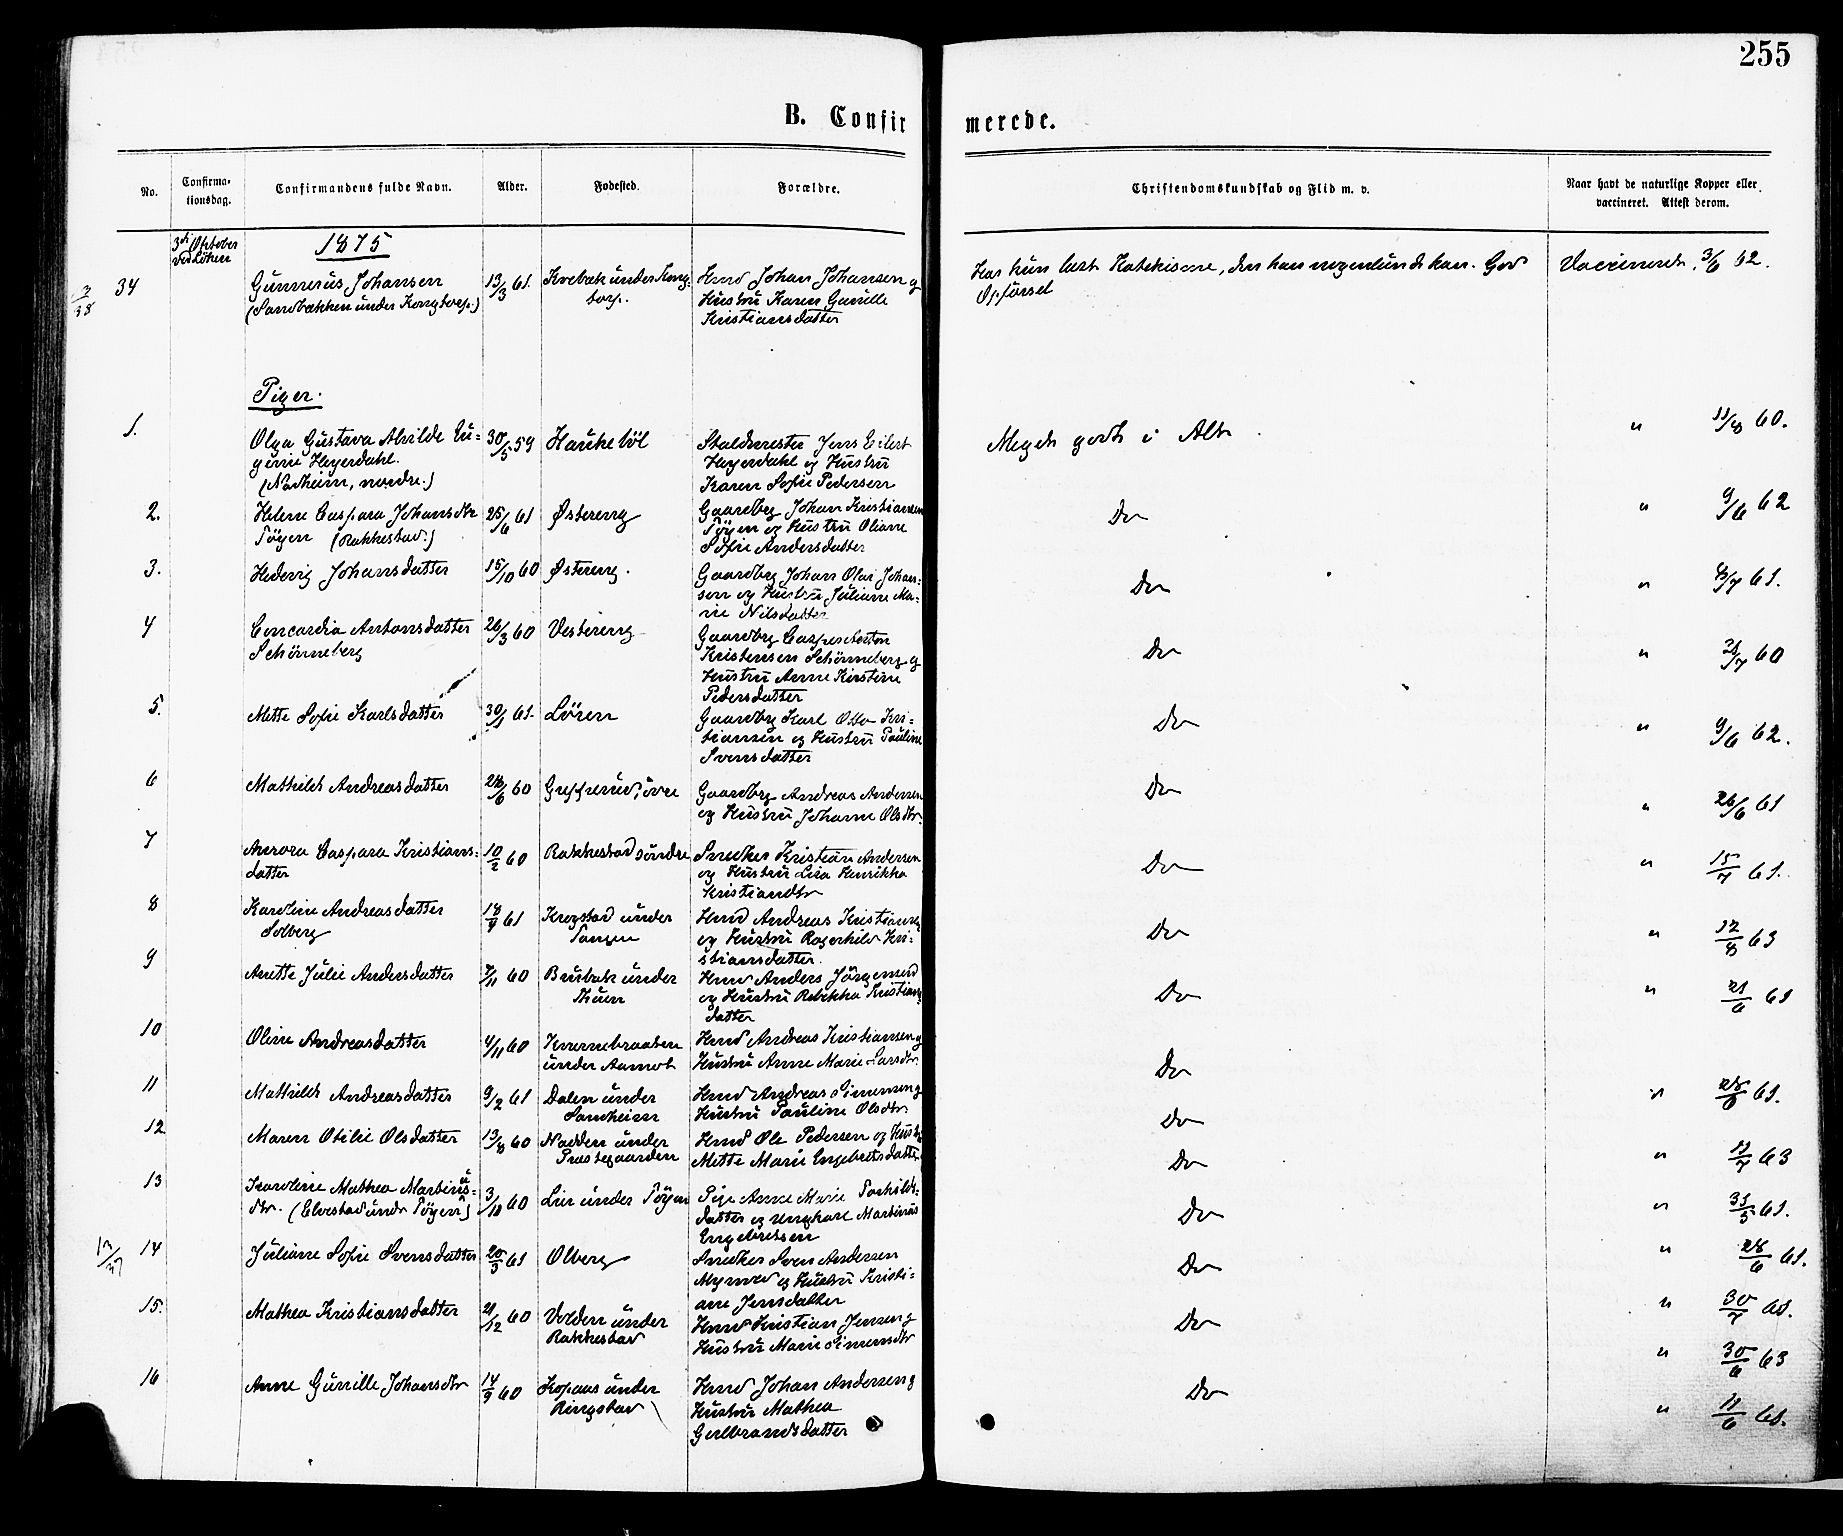 255
B. Confir
merede.
No.
Confirma-
tionsdag.
Confirmandens fulde Navn.
Alder.
Fødested.
Forældre.
Christendomskundskab og Flid m. v.
Naar havt de naturlige Kopper eller
vaccineret. Attest derom.
3di Oktober
ved Löken
1875
34
Gunnerius Johansen
(Sandbækken under Kongtorp.)
13/3 61.
Kvebæk under Kong-
torp.
Hmd Johan Johansen og
Hustru Karen Gunille
Kristiansdatter
Har kun læst Katekisme, den han nogenlunde kan. God
Opförsel
Vaccineret, 3/6 62.
Piger.
1.
Olga Gustava Alvilde Eu-
genie Heyerdahl.
(Narheim, nordre.)
30/5 59
Haukeböl
Staldmester Jens Eilert
Heyerdahl og Hustru
Karen Sofie Pedersen
Meget godt i Alt
" 11/8 60.
2.
Helene Caspara Johansdtr
Töyen (Rakkestad.)
25/6 61
Östereng
Gaardbrg Johan Kristiansen
Töyen og Hustru Oliane
Sofie Andersdatter
Do
" 9/6 62
3.
Hedevig Johansdatter
15/10 60
Östereng.
Gaardbrg Johan Olai Johan-
sen og Hustru Juliane Ma-
rie Nilsdatter
Do
" 8/7 61.
4
Concordia Antonsdatter
Schönneberg
26/3 60
Vestereng
Gaardbrg Casper Anton
Kristensen Schönneberg og
Hustru Anne Kirstine
Pedersdatter
Do
" 28/7 60
5.
Mette Sofie Karlsdatter
30/1 61.
Lören
Gaardbrg Karl Otto Kri-
stiansen og Hustru Pauline
Svensdatter
Do
" 9/6 62.
6
Mathilde Andreasdatter
28/6 60
Gupperud, övre
Gaardbrg Andreas Andersen
og Hustru Johanne Olsdtr.
Do
" 26/6 61
7
Aurora Caspara Kristians-
datter
10/2 60
Rakkestad söndre
Snedker Kristian Andersen
og Hustru Lisa Henrikka
Kristiandtr
Do
" 15/7 61.
8
Karoline Andreasdatter
Solberg
18/4 61
Krogstad under
Tangen
Hmd Andreas Kristiansen
og Hustru Ragnhild Kri-
stiansdatter.
Do
" 12/8 63
9
Anette Julie Andersdatter
7/11 60
Brubæk under
Thuen
Hmd Anders Jörgensen
og Hustru Rebekka Kristians-
datter
Do
" 21/6 61
10
Oline Andreasdatter
4/11 60
Knernebraaten
under Aamot
Hmd Andreas Kristiansen og
Hustru Anne Marie Larsdtr.
Do
11
Mathilde Andreasdatter
9/2 61
Dalen under
Samheim
Hmd Andreas Simensen og
Hustru Pauline Olsdtr.
Do
" 28/6 61.
12
Maren Otilie Olsdatter
13/8 60
Nadden under
Præstegaarden
Hmd Ole Pedersen og Hustru
Mette Marie Engebretsdatter
Do
" 11/7 63
13
Karoline Mathea Martinus-
dtr. (Elvestad under Töyen)
3/10 60
Lier under Töyen
Pige Anne Marie Torkilds-
datter og Ungkarl Martinus
Engebretsen
Do
" 31/5 61.
13/37
14
Juliane Sofie Svensdatter
20/3 61
Olberg
Snedker Sven Andersen
Mynner og Hustru Kristi-
ane Jensdatter
Do
" 28/6 61.
15.
Mathea Kristiansdatter
21/12 60
Volden under
Rakkestad
Hmd Kristian Jensen og
Hustru Marie Simensdtr
Do
" 30/7 61.
" 30/6 63
16
Anne Gunille Johansdtr
14/9 60
Kopaas under
Ringstad
Hmd Johan Andersen og
Hustru Mathea
Gulbrandsdatter
Do
" 11/6 61.